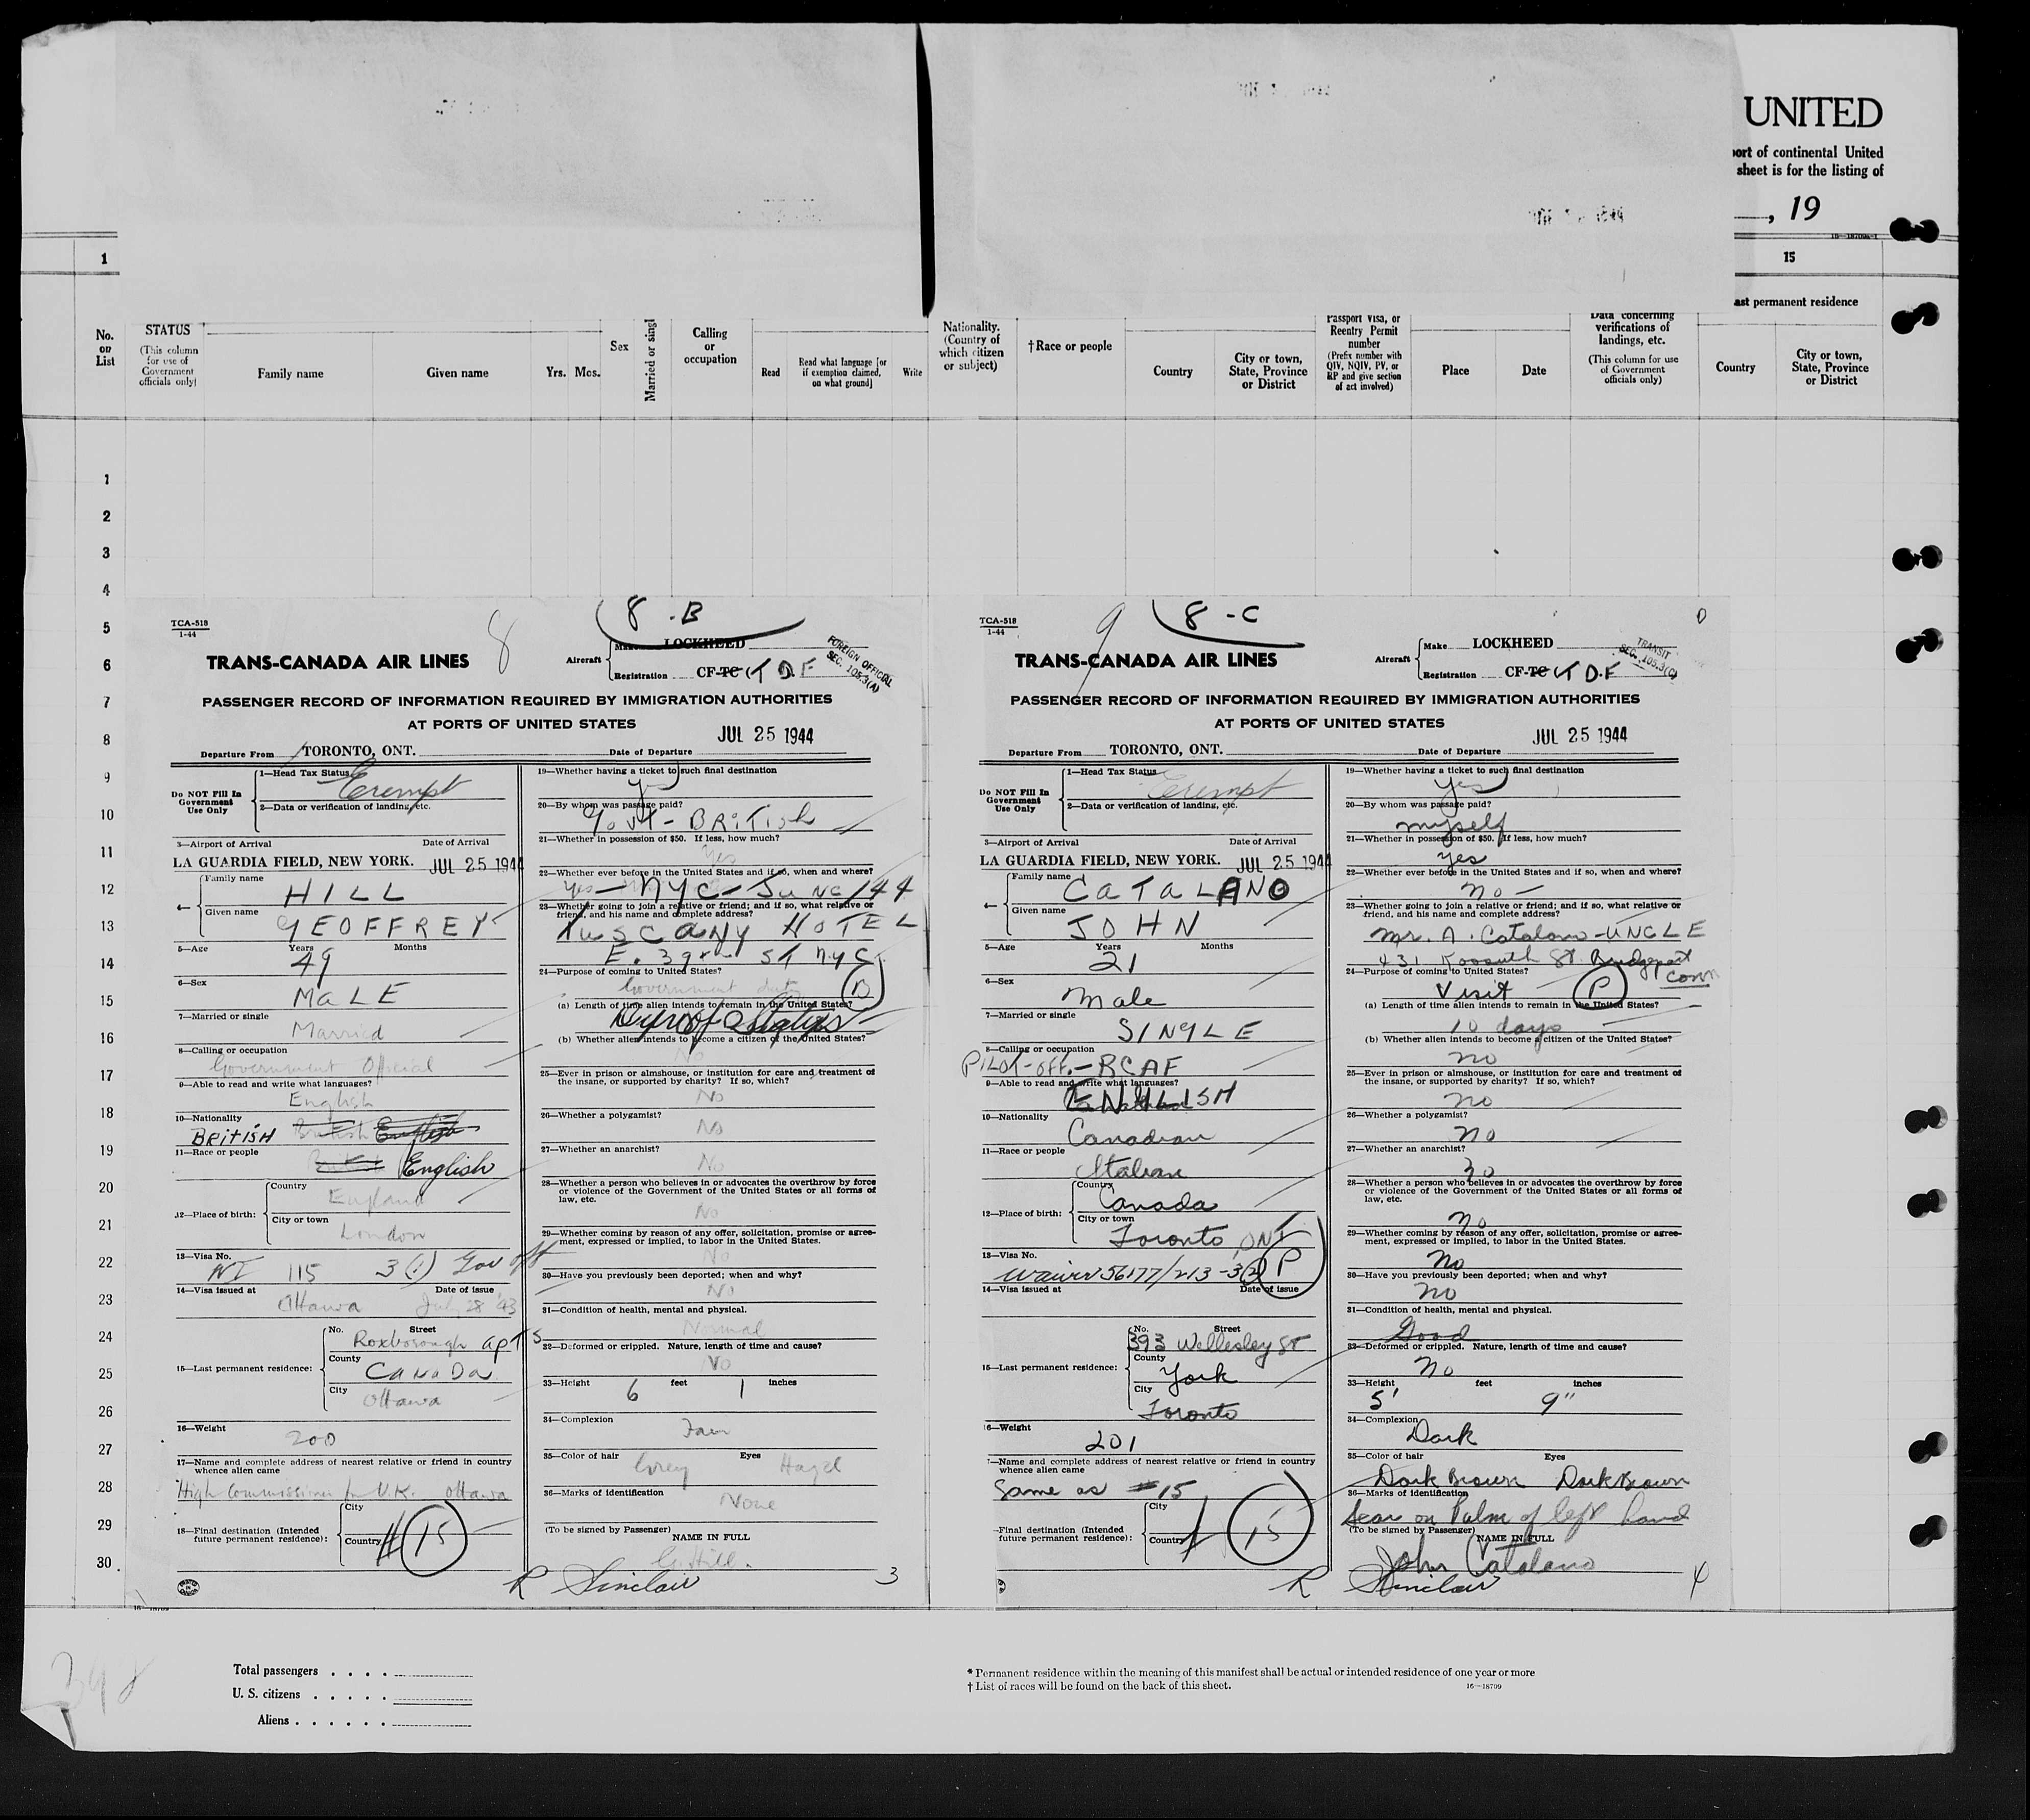 UNITED
ort of continental United
sheet is for the listing of
, 19
16—18709a-1
1
15
ast permanent residence
No. on List
STATUS
(This column for use of Government officials only)
Family name
Given name
Yrs.
Mos.
Sex
Married or singl
Calling or occupation
Read
Read what language [or if exemption claimed, on what ground]
Write
Nationality. (Country of which citizen or subject)
†Race or people
Country
City or town, State, Province or District
Passport Visa, or Reentry Permit number
(Prefix number with QIV, NQIV, PV, or RP and give section of act involved)
Place
Date
Data concerning verifications of landings, etc.
(This column for use of Government officials only)
Country
City or town, State, Province or District
1
2
3
4
5
6
7
8
9
10
11
12
13
14
15
16
17
18
19
20
21
22
23
24
25
26
27
28
29
30
TCA-518
1-44
8
8-B
TRANS-CANADA AIR LINES
Aircraft
Make LOCKHEED
Registration CF-TC T D.F
FOREIGN OFFICIAL
SEC. 105.3(A)
PASSENGER RECORD OF INFORMATION REQUIRED BY IMMIGRATION AUTHORITIES
AT PORTS OF UNITED STATES
JUL 25 1944
Departure From TORONTO, ONT. Date of Departure
Do NOT Fill In Government Use Only
1—Head Tax Status
Exempt
2—Data or verification of landing, etc.
3—Airport of Arrival Date of Arrival
LA GUARDIA FIELD, NEW YORK. JUL 25 1944
4—
Family name
HILL
Given name
GEOFFREY
5—Age Years Months
49
6—Sex
MaLE
7—Married or single
Married
8—Calling or occupation
Government Official
9—Able to read and write what languages?
English
10—Nationality
BRITISH British English
11—Race or people
British English
12—Place of birth:
Country
England
City or town
London
13—Visa No.
NI 115 3(1) Gov off
14—Visa issued at Date of issue
Ottawa July 28 '43
15—Last permanent residence:
No. Street
Roxborough apTS
County
CaNaDa
City
Ottawa
16—Weight
200
17—Name and complete address of nearest relative or friend in country
whence alien came
High Commissioner for U.K. Ottawa
18—Final destination (Intended
future permanent residence):
City
Country # 15
19—Whether having a ticket to such final destination
yes
20—By whom was passage paid?
Govt - BRITish
21—Whether in possession of $50. If less, how much?
Yes
22—Whether ever before in the United States and if so, when and where?
Yes - NYC - June/44
23—Whether going to join a relative or friend; and if so, what relative or
friend, and his name and complete address?
Tuscany HOTEL
E. 39th ST NYC
24—Purpose of coming to United States?
Government duty B
(a) Length of time alien intends to remain in the United States?
(b) Whether alien intends to become a citizen of the United States?
No
25—Ever in prison or almshouse, or institution for care and treatment of
the insane, or supported by charity? If so, which?
No
26—Whether a polygamist?
No
27—Whether an anarchist?
No
28—Whether a person who believes in or advocates the overthrow by force
or violence of the Government of the United States or all forms of
law, etc.
No
29—Whether coming by reason of any offer, solicitation, promise or agree-
ment, expressed or implied, to labor in the United States.
No
30—Have you previously been deported; when and why?
No
31—Condition of health, mental and physical.
Normal
32—Deformed or crippled. Nature, length of time and cause?
No
33—Height 6 feet 1 inches
34—Complexion
Fair
35—Color of hair Eyes
Grey Hazel
36—Marks of identification
None
(To be signed by Passenger)
NAME IN FULL
G. Hill.
R Sinclair 3
TCA-518
1-44
9
8-C
0
TRANS-CANADA AIR LINES
Aircraft
Make LOCKHEED
Registration CF-TC T D.F
TRANSIT
SEC. 105.3(C)
PASSENGER RECORD OF INFORMATION REQUIRED BY IMMIGRATION AUTHORITIES
AT PORTS OF UNITED STATES
JUL 25 1944
Departure From TORONTO, ONT. Date of Departure
Do NOT Fill In Government Use Only
1—Head Tax Status
Exempt
2—Data or verification of landing, etc.
3—Airport of Arrival Date of Arrival
LA GUARDIA FIELD, NEW YORK. JUL 25 1944
4—
Family name
CATALANO
Given name
JOHN
5—Age Years Months
21
6—Sex
Male
7—Married or single
SINGLE
8—Calling or occupation
PILOT-OFF.-RCAF
9—Able to read and write what languages?
ENGLISH
10—Nationality
Canadian
11—Race or people
Italian
12—Place of birth:
Country
Canada
City or town
Toronto ONT
13—Visa No.
Waiver 56177/213-3(2) P
14—Visa issued at Date of issue
15—Last permanent residence:
No. Street
393 Wellesley ST
County
York
City
Toronto
16—Weight
201
-Name and complete address of nearest relative or friend in country
whence alien came
Same as #15
-Final destination (Intended
future permanent residence):
City
Country # 15
19—Whether having a ticket to such final destination
yes
20—By whom was passage paid?
myself
21—Whether in possession of $50. If less, how much?
yes
22—Whether ever before in the United States and if so, when and where?
no -
23—Whether going to join a relative or friend; and if so, what relative or
friend, and his name and complete address?
Mr. A. Catalano - UNCLE
431 Kossuth St. Bridgeport Conn
24—Purpose of coming to United States?
Visit P
(a) Length of time alien intends to remain in the United States?
10 days
(b) Whether alien intends to become a citizen of the United States?
no
25—Ever in prison or almshouse, or institution for care and treatment of
the insane, or supported by charity? If so, which?
no
26—Whether a polygamist?
no
27—Whether an anarchist?
no
28—Whether a person who believes in or advocates the overthrow by force
or violence of the Government of the United States or all forms of
law, etc.
no
29—Whether coming by reason of any offer, solicitation, promise or agree-
ment, expressed or implied, to labor in the United States.
No
30—Have you previously been deported; when and why?
no
31—Condition of health, mental and physical.
Good
32—Deformed or crippled. Nature, length of time and cause?
No
33—Height feet inches
5' 9"
34—Complexion
Dark
35—Color of hair Eyes
Dark Brown Dark Brown
36—Marks of identification
Scar on Palm of left hand
(To be signed by Passenger)
NAME IN FULL
John Catalano
R Sinclair 4
16—18709
Total passengers . . . .
U. S. citizens . . . . .
Aliens . . . . . .
* Permanent residence within the meaning of this manifest shall be actual or intended residence of one year or more
† List of races will be found on the back of this sheet.
16—18709